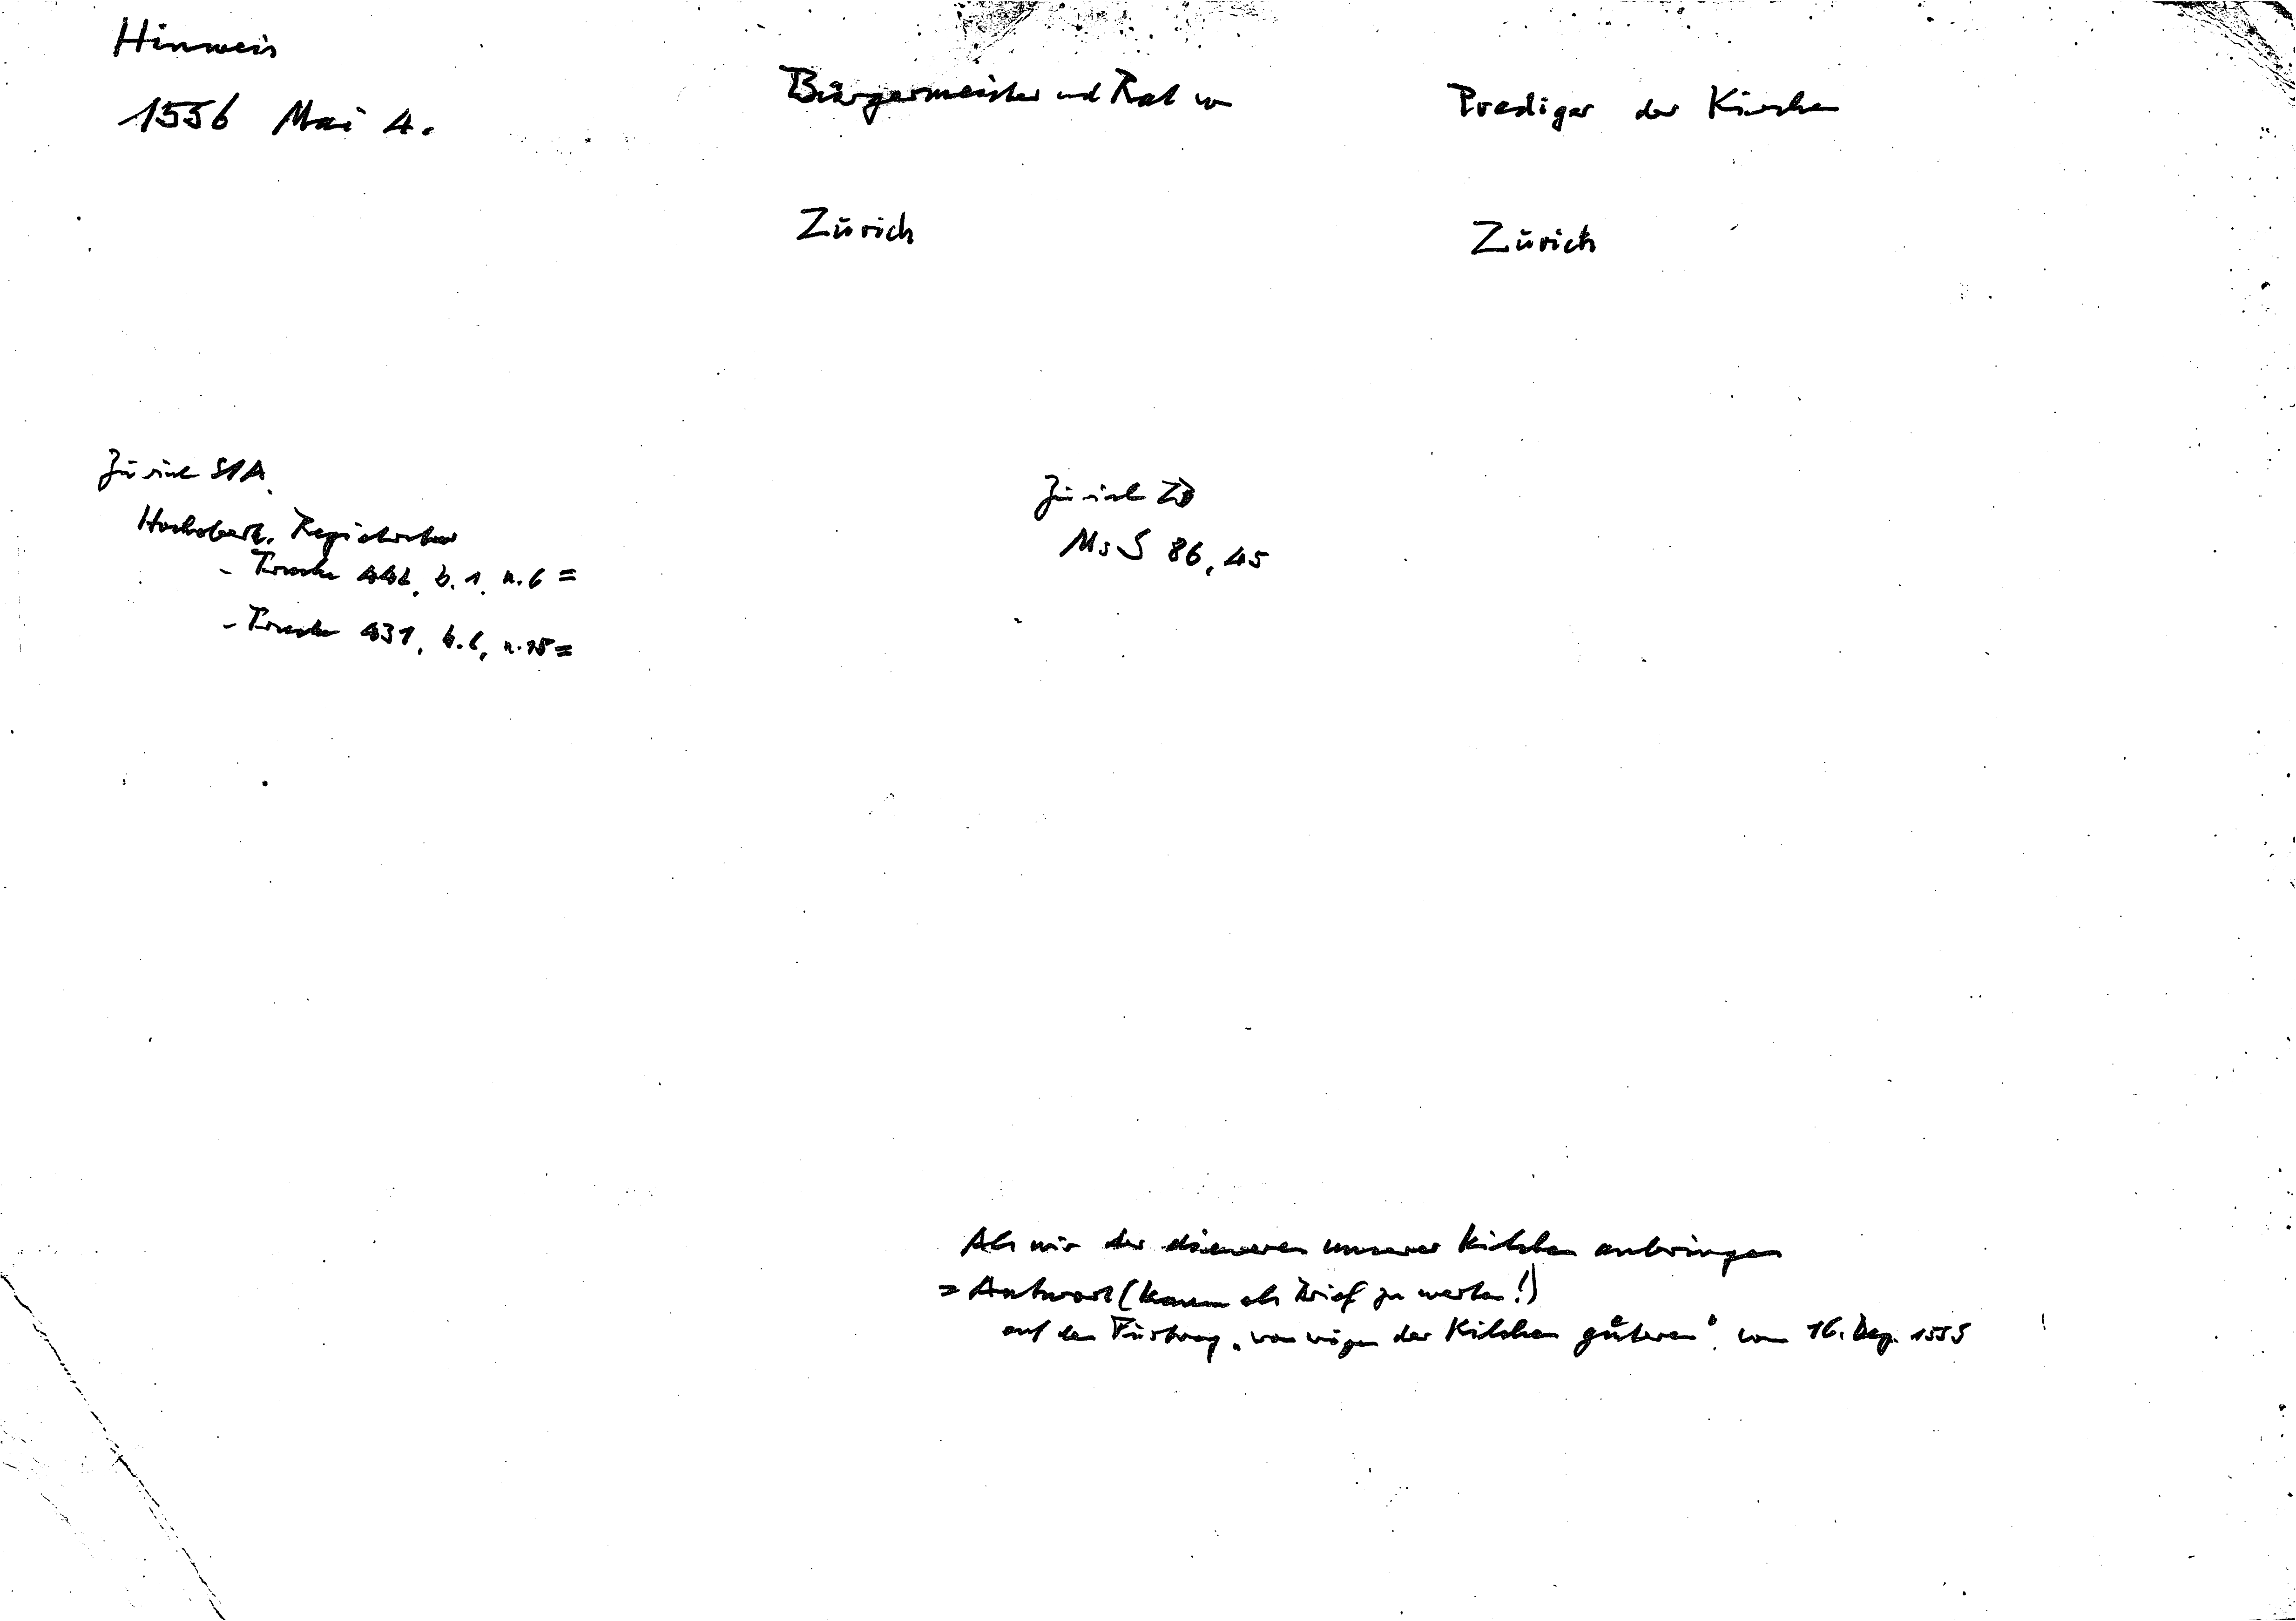 Hinweis
1556 Mai 4.
Bürgermeister und Rat von
Zürich
Prediger der Kirchen
Zürich
Zürich StA
Hochobrk. Registratur
- Trucke 442, b. 1, n. 6 =
- Trucke 431, b. 6, n. 15 =
Zürich ZB
Ms S 86, 45
Als wir der dieneren unserer Kilchen anbringen
= Antwort (kaum als Brief zu werten!)
auf den Fürtrag „von wegen der Kilchen gůteren“ vom 16. Dez. 1555